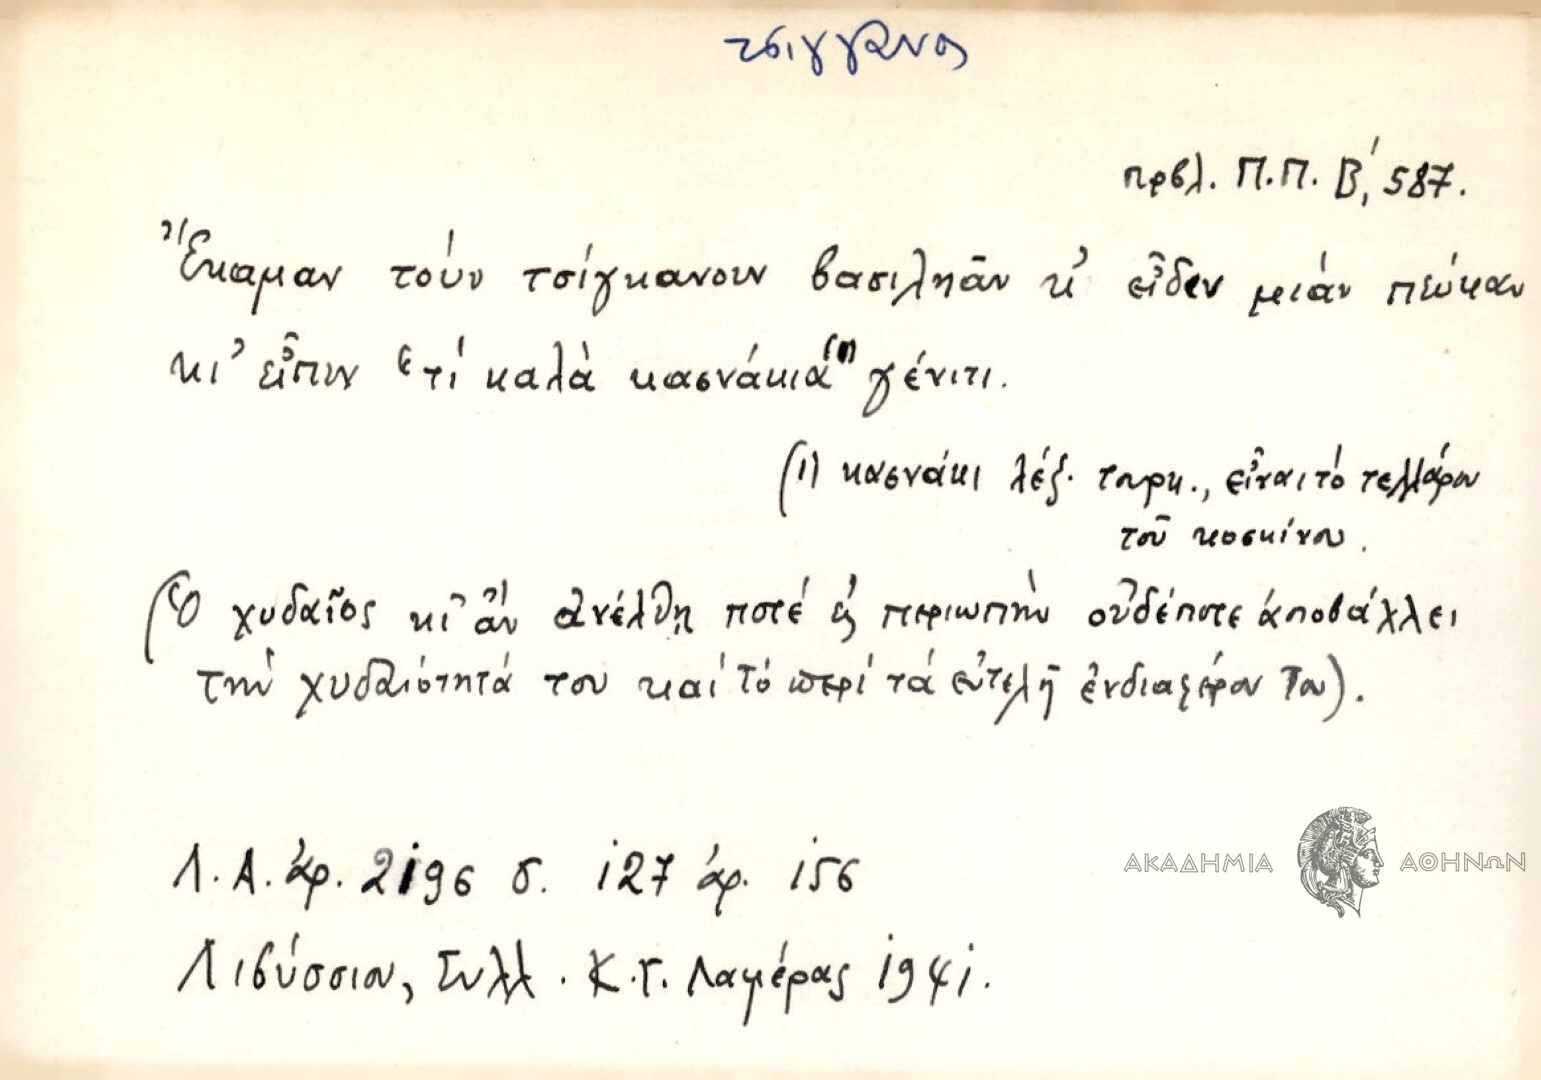 τσιγγᾶνος
πρβλ. Π.Π. Β΄, 587.
Ἔκαμαν τοὺν τσίγκανουν βασιλῃᾶν κ' εἶδεν μιὰν πεύκαν
κι' εἶπιν "τί καλὰ κασνάκια(1)" γένιτι.
(1) κασνάκι λέξ. τουρκ., εἶναι τὸ τελλάρον
τοῦ κοσκίνου.
(Ὁ χυδαῖος κι' ἂν ἀνέλθῃ ποτέ εἰς περιωπὴν οὐδέποτε ἀποβάλλει
τὴν χυδαιότητά του καὶ τὸ περὶ τὰ εὐτελῆ ἐνδιαφέρον του).
Λ.Α. ἀρ. 2196 σ. 127 ἀρ. 156
Λιβύσσιον, Συλλ. Κ.Γ. Λαμέρας 1941.
ΑΚΑΔΗΜΙΑ ΑΘΗΝΩΝ